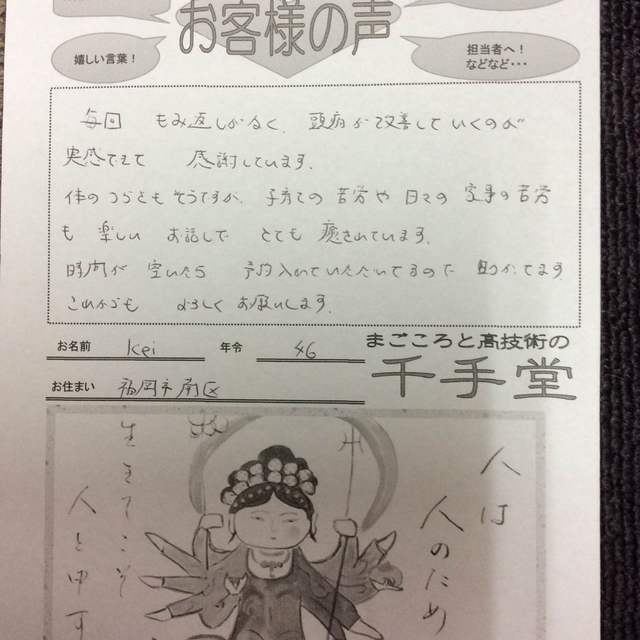 お客様の声
嬉しい言葉!
担当者へ!
などなど・・・
毎回 もみ返しがなく、頭痛が改善していくのが
実感できて 感謝しています。
体のつらさもそうですが、子育ての苦労や日々の家事の苦労
も 楽しい お話しで とても 癒されています。
時間が 空いたら 予約入れていただいてるので 助かってます
これからも よろしくお願いします。
お名前 Kei 年令 46
お住まい 福岡市南区
まごころと高技術の
千手堂
人は
人のため
生きてこそ
人と申す